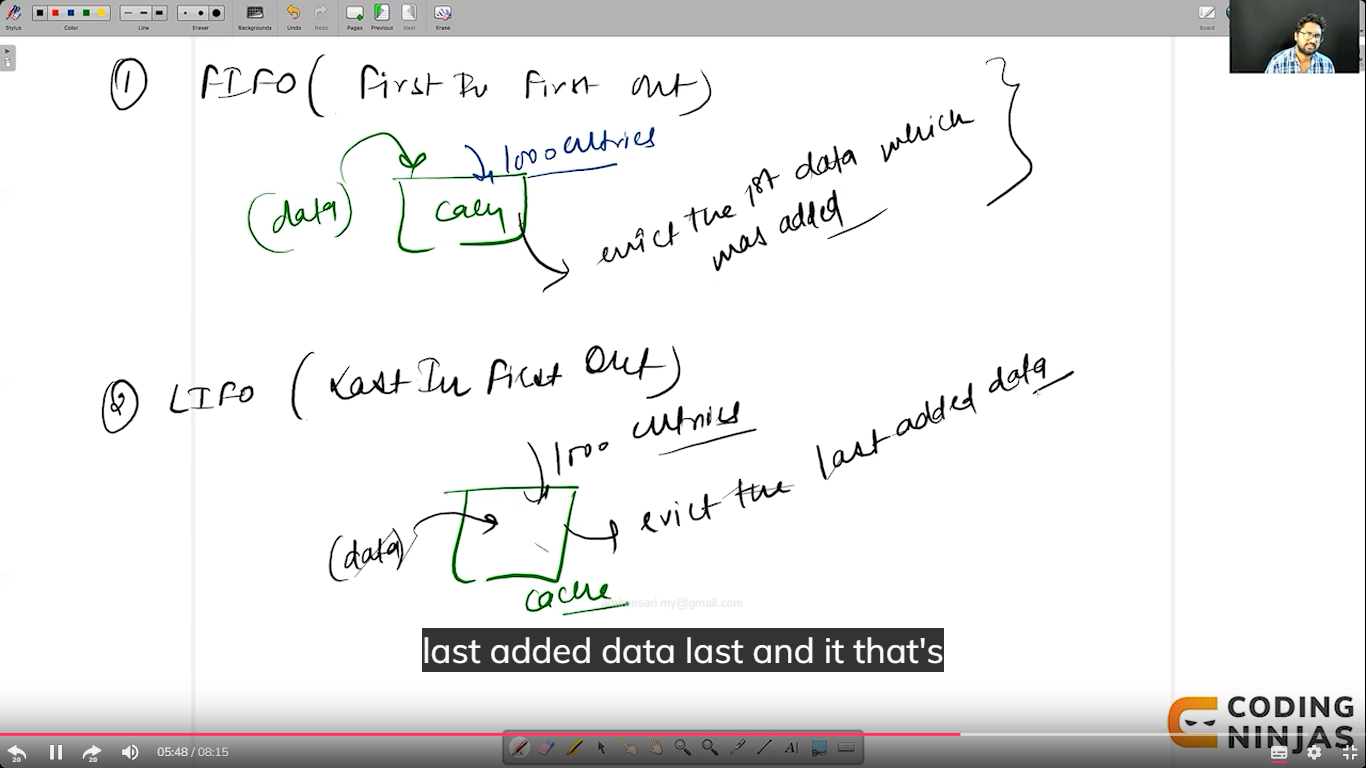 Stylus Color Line Eraser Backgrounds Undo Redo Pages Previous Next Erase Board
① FIFO ( First In First Out )
1000 entries
(data)
evict the 1st data which
was added
② LIFO ( Last In First Out )
1000 entries
evict the last added data
(data)
cache
last added data last and it that's
CODING
NINJAS
20 20 05:48 / 08:15